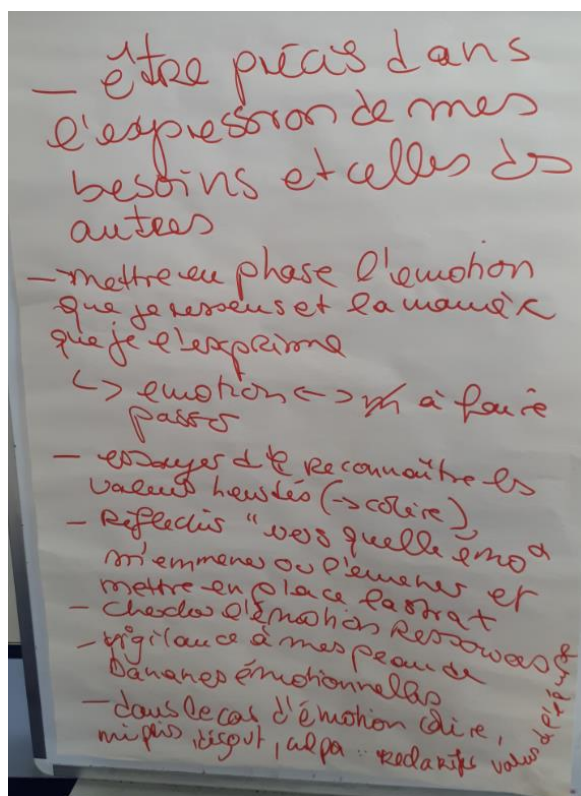 — être précis dans
l'expression de mes
besoins et celles des
autres
— mettre en phase l'emotion
que je ressens et la manière
que je l'exprime
↳ emotion <-> à faire
passer
— essayer de reconnaître les
valeurs heurtés (→ colère)
— Réflechir "vers quelle émo°
m'emmener ou l'emener et
mettre en place la strat
— checker l'émotion Ressources
— vigilance à mes peau de
bananes émotionnelles
— dans le cas d'émotion colère,
mépris, dégout, culpa : valeurs